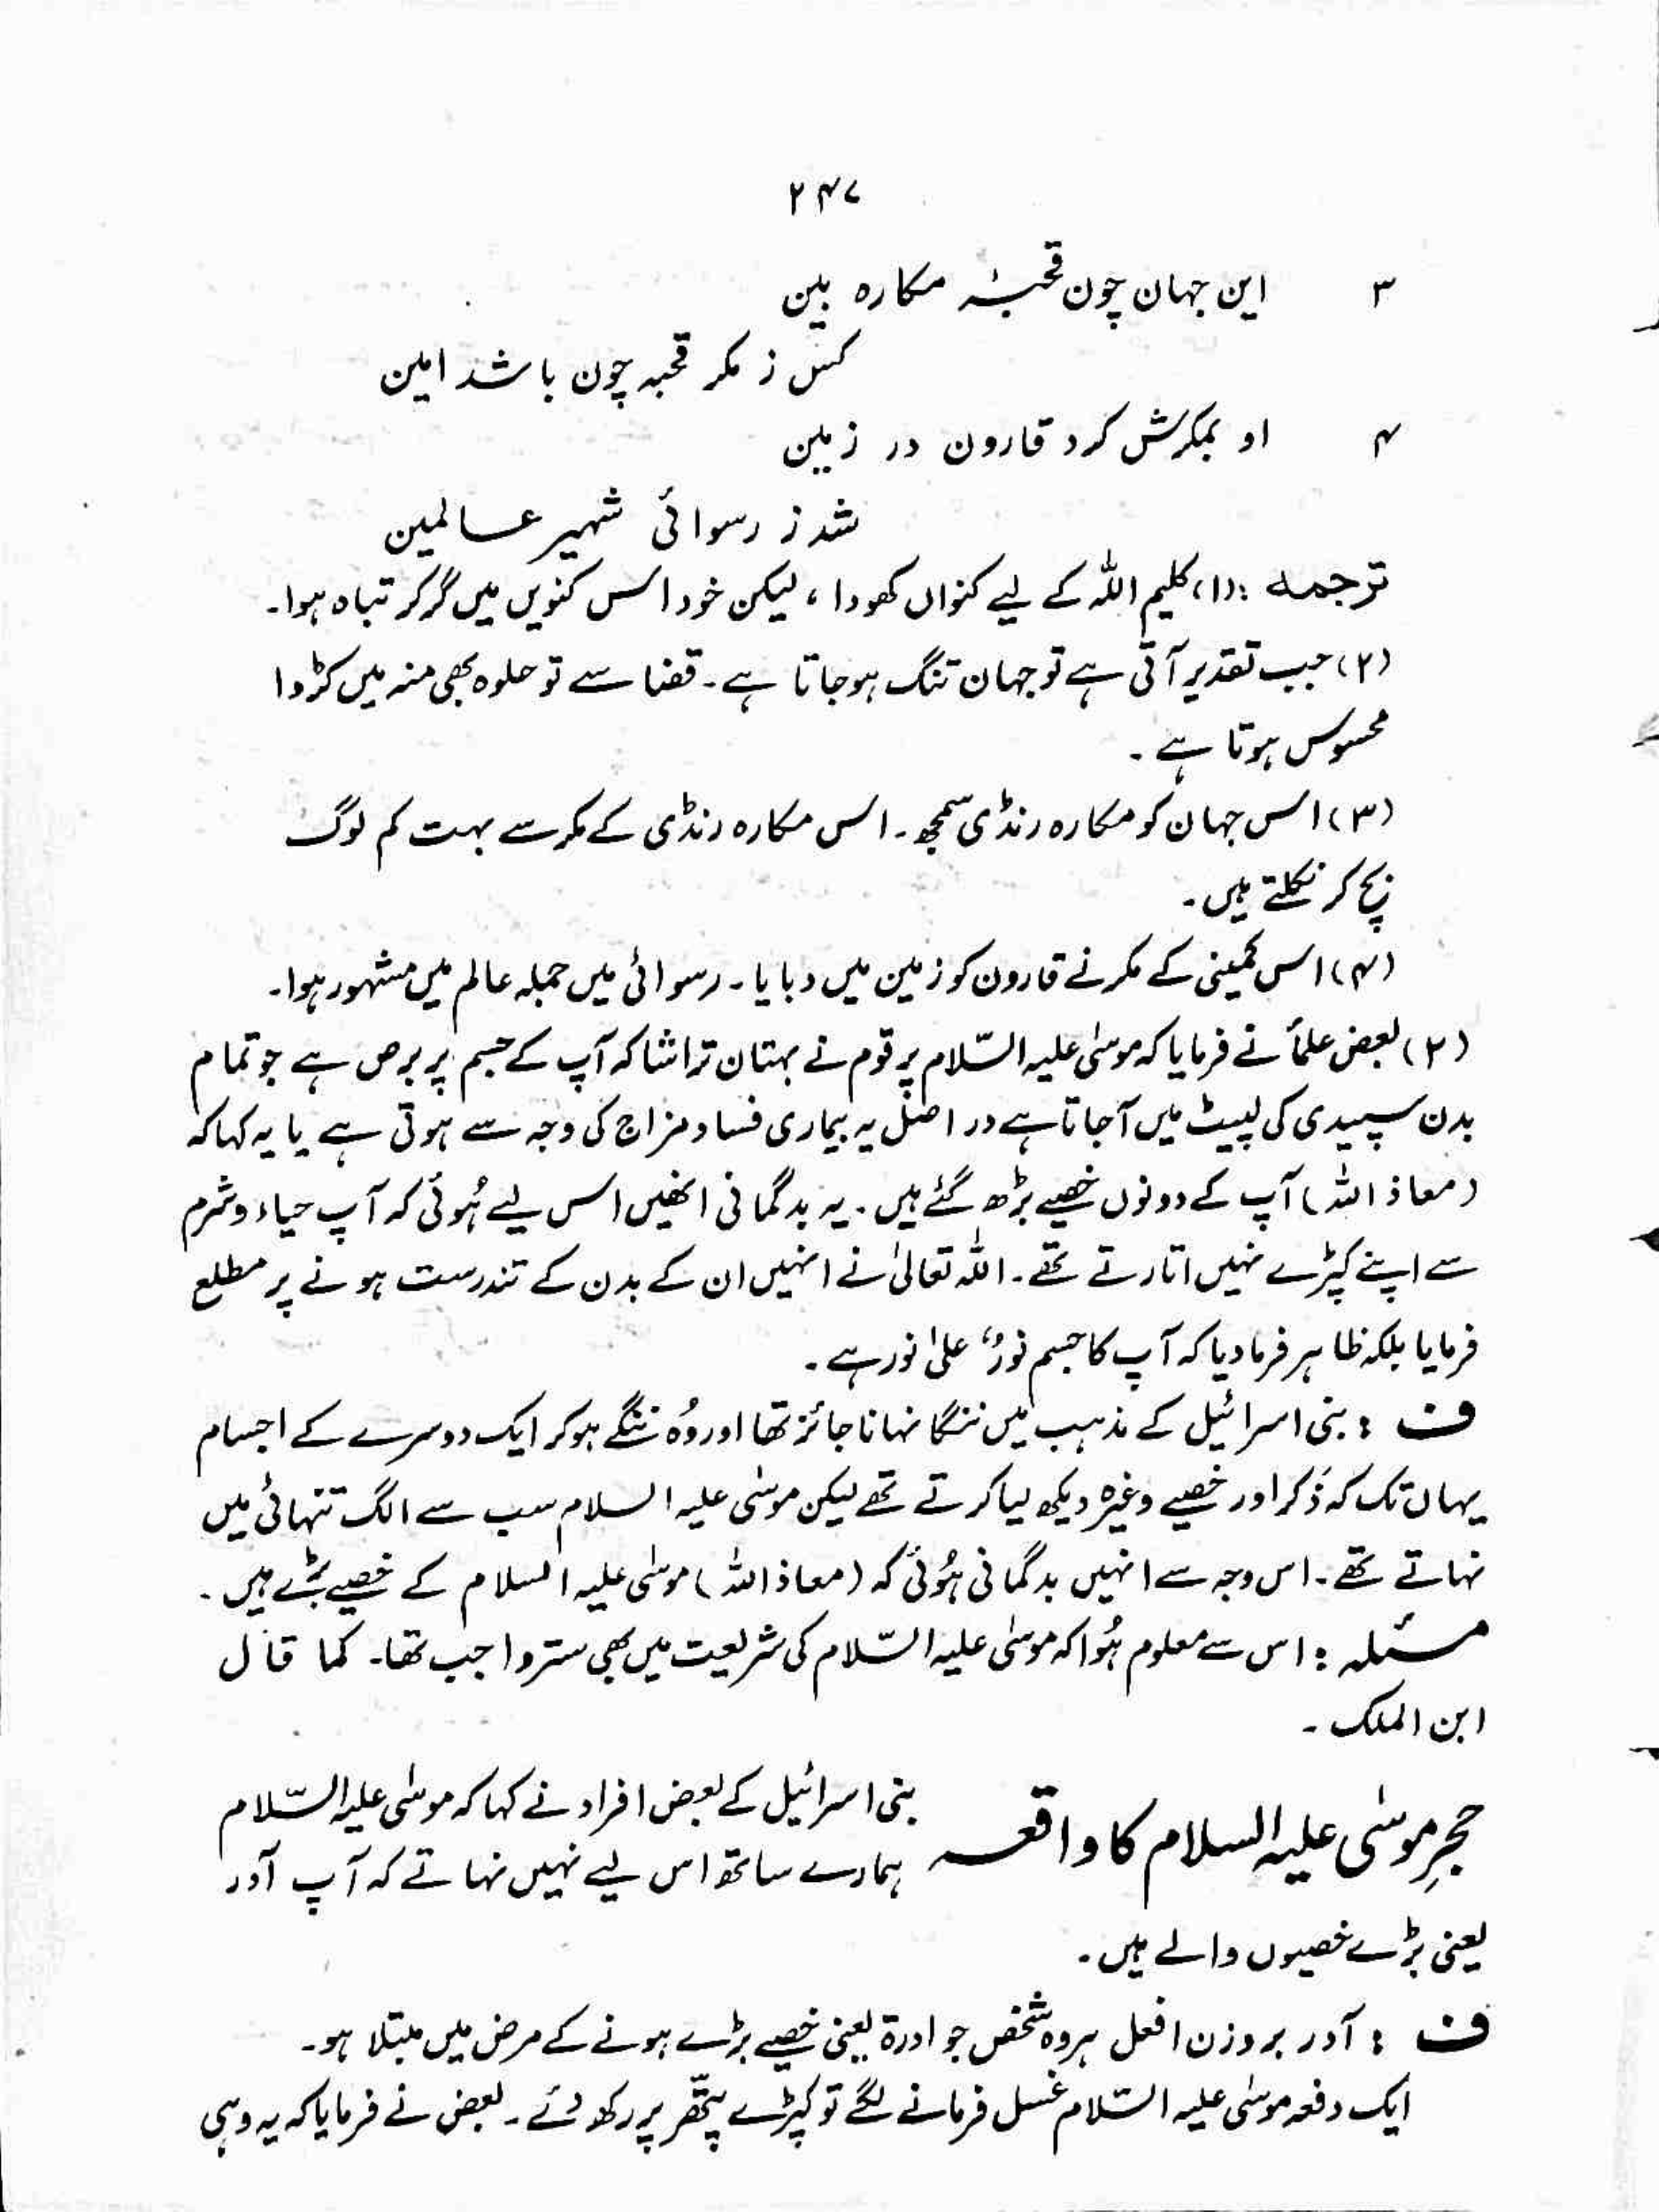 ۲۴۷
۳ این جہان چون قحبۂ مکارہ بین
کس ز مکر قحبہ چون باشد امین
۴ او بمکرش کرد قارون در زمین
شد ز رسوائی شہیر عالمین
ترجمہ : (۱) کلیم اللہ کے لیے کنواں کھودا ، لیکن خود اس کنویں میں گر کر تباہ ہوا۔
(۲) جب تقدیر آتی ہے تو جہان تنگ ہوجاتا ہے۔ قضا سے تو حلوہ بھی منہ میں کڑوا
محسوس ہوتا ہے ۔
(۳) اس جہان کو مکارہ رنڈی سمجھ۔ اس مکارہ رنڈی کے مکر سے بہت کم لوگ
بچ کر نکلتے ہیں۔
(۴) اس کمینی کے مکر نے قارون کو زمین میں دبایا۔ رسوائی میں جملہ عالم میں مشہور ہوا۔
(۲) بعض علمأ نے فرمایا کہ موسٰی علیہ السّلام پر قوم نے بہتان تراشا کہ آپ کے جسم پر برص ہے جو تمام
بدن سپیدی کی لپیٹ میں آجاتا ہے در اصل یہ بیماری فساد مزاج کی وجہ سے ہوتی ہے یا یہ کہا کہ
(معاذ اللہ) آپ کے دونوں خصیے بڑھ گئے ہیں۔ یہ بدگمانی انھیں اس لیے ہُوئی کہ آپ حیاء و شرم
سے اپنے کپڑے نہیں اتارتے تھے۔ اللہ تعالیٰ نے انہیں ان کے بدن کے تندرست ہونے پر مطلع
فرمایا بلکہ ظاہر فرمادیا کہ آپ کا جسم نورٌ علیٰ نور ہے ۔
ف : بنی اسرائیل کے مذہب میں ننگا نہانا جائز تھا اور وُہ ننگے ہوکر ایک دوسرے کے اجسام
یہاں تک کہ ذَکر اور خصیے وغیرہ دیکھ لیا کرتے تھے لیکن موسٰی علیہ السلام سب سے الگ تنہائی میں
نہاتے تھے۔ اس وجہ سے انہیں بدگمانی ہُوئی کہ (معاذ اللہ) موسٰی علیہ السلام کے خصیے بڑے ہیں ۔
مسئلہ : اس سے معلوم ہُوا کہ موسٰی علیہ السّلام کی شریعت میں بھی ستر واجب تھا۔ کما قال
ابن الملک ۔
حجرِ موسٰی علیہ السلام کا واقعہ بنی اسرائیل کے بعض افراد نے کہا کہ موسٰی علیہ السّلام
ہمارے ساتھ اس لیے نہیں نہاتے کہ آپ آدر
یعنی بڑے خصیوں والے ہیں ۔
ف : آدر بروزن افعل ہر وہ شخص جو ادرۃ یعنی خصیے بڑے ہونے کے مرض میں مبتلا ہو۔
ایک دفعہ موسٰی علیہ السّلام غسل فرمانے لگے تو کپڑے پتّھر پر رکھ دئے ۔ بعض نے فرمایا کہ یہ وہی